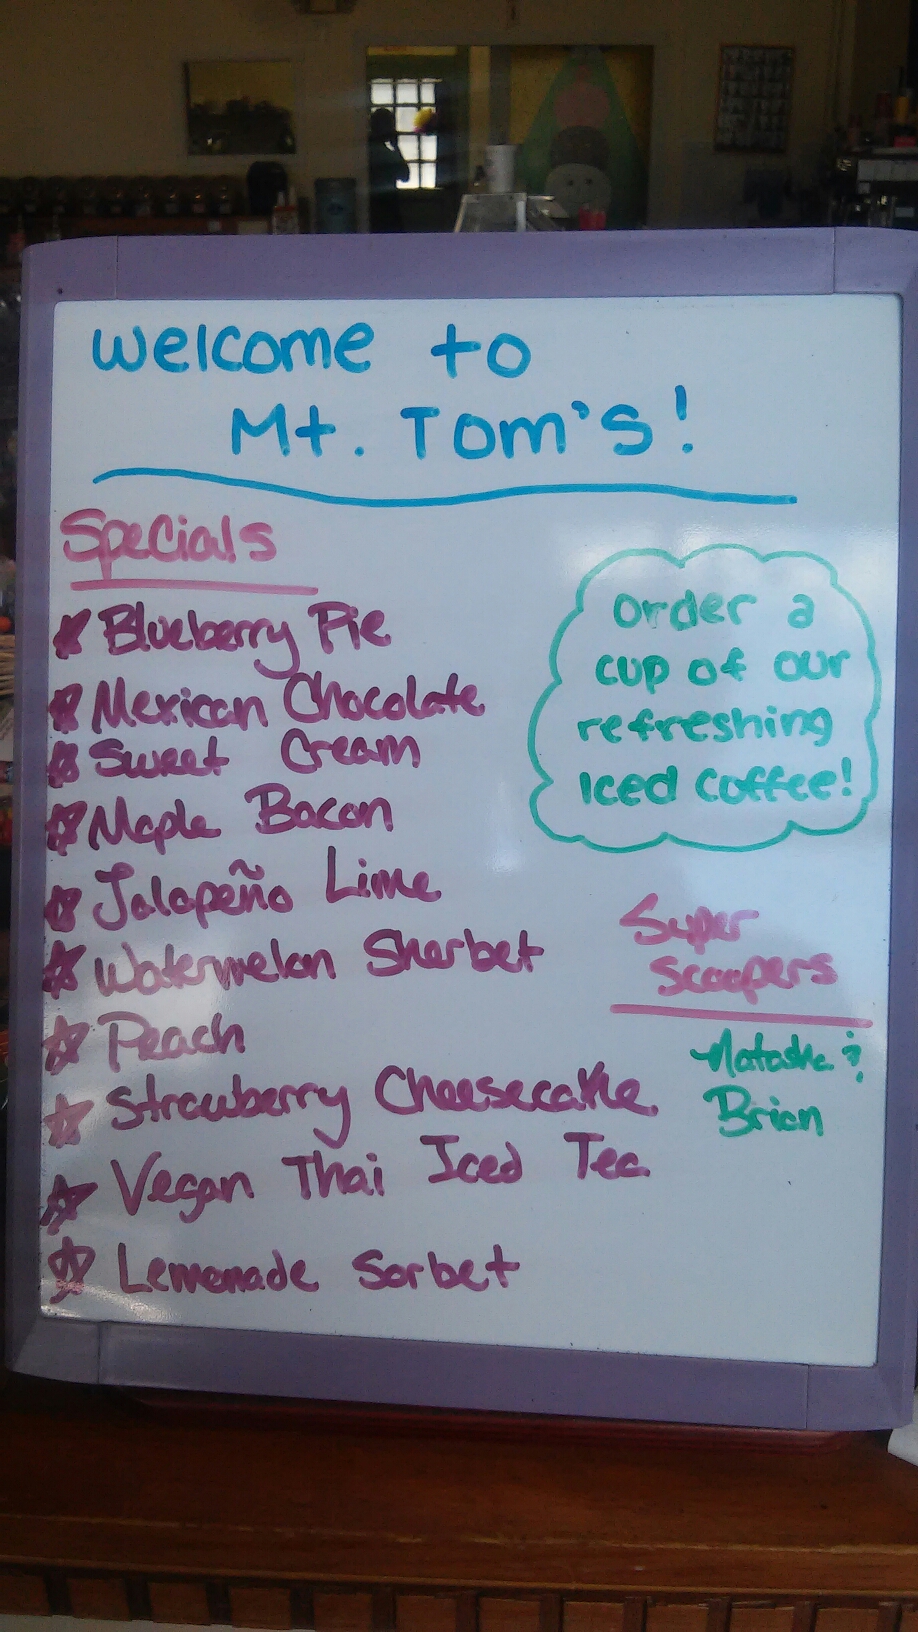 Welcome to
Mt. Tom's!
Specials
Blueberry Pie
Mexican Chocolate
Sweet Cream
Maple Bacon
Jalapeño Lime
Watermelon Sherbet
Peach
Strawberry Cheesecake
Vegan Thai Iced Tea
Lemonade Sorbet
Order a
cup of our
refreshing
Iced Coffee!
Super
Scoopers
Natasha &
Brian